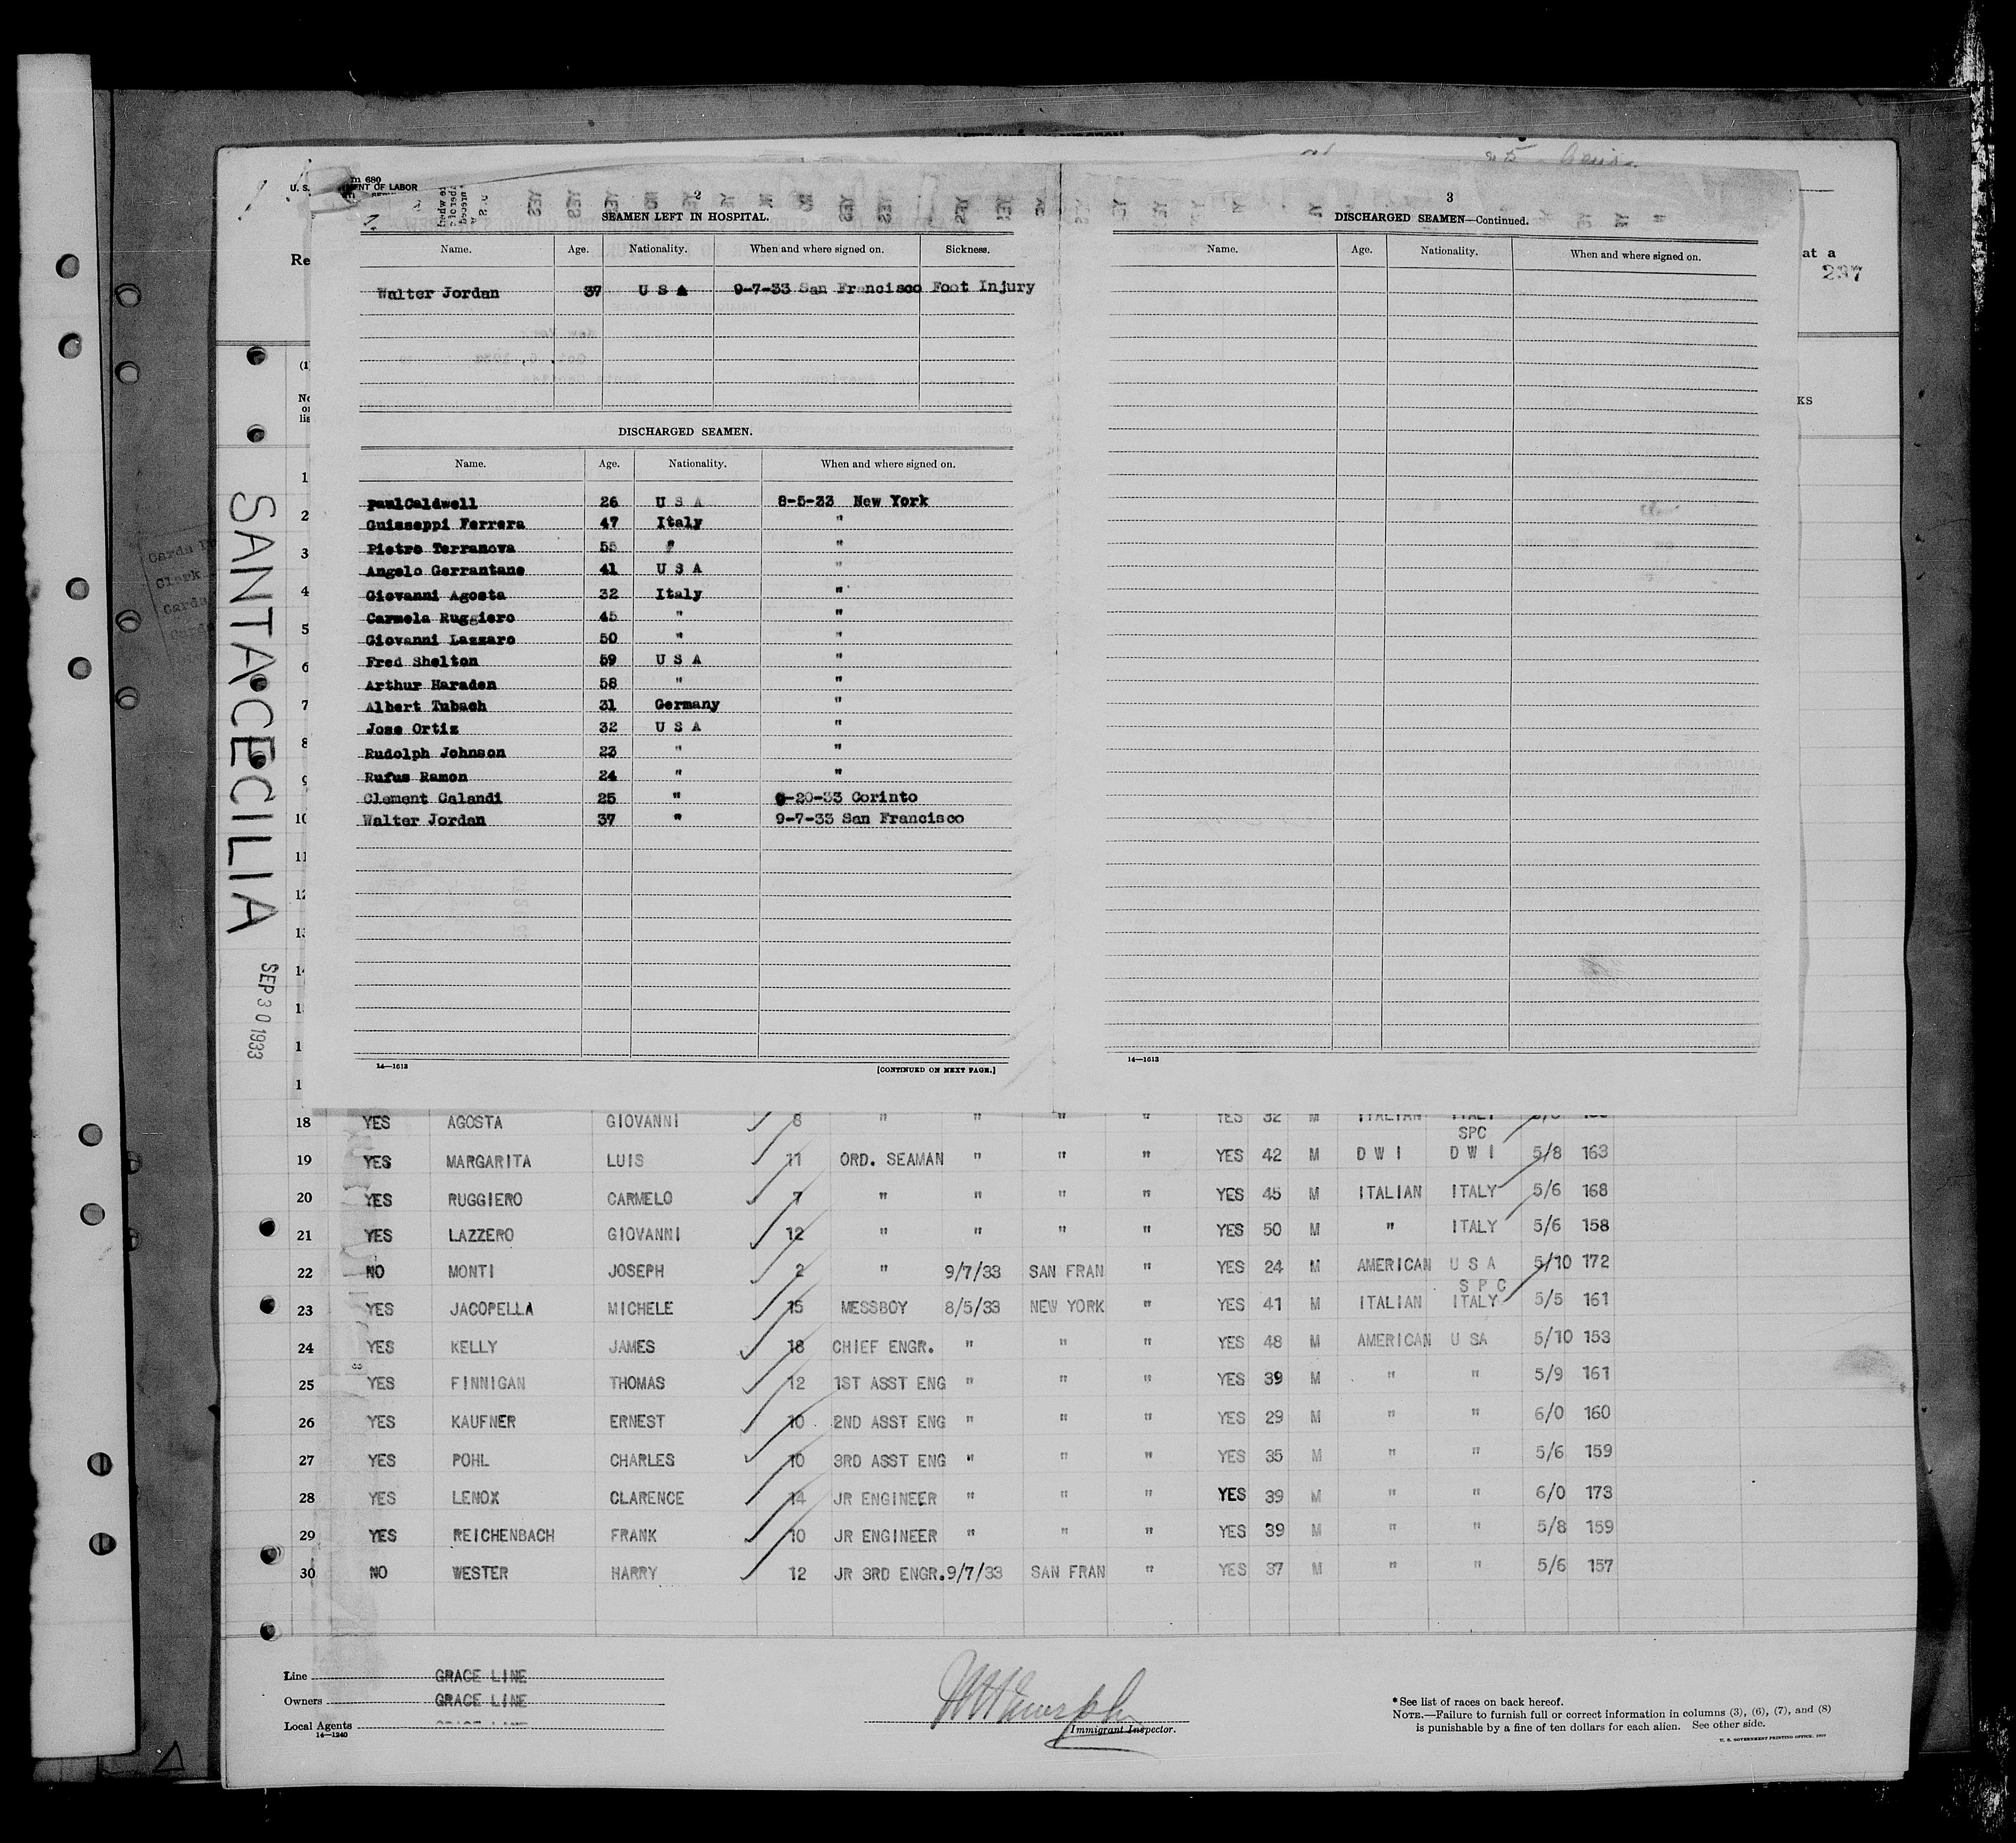 m 680
U. S. MENT OF LABOR
2
SEAMEN LEFT IN HOSPITAL.
Name. Age. Nationality. When and where signed on. Sickness.
Walter Jordan 37 U S A 9-7-33 San Francisco Foot Injury
DISCHARGED SEAMEN.
Name. Age. Nationality. When and where signed on.
PaulCaldwell 26 U S A 8-5-33 New York
Guisseppi Ferrera 47 Italy "
Pietro Terranova 55 " "
Angelo Gerrantano 41 U S A "
Giovanni Agosta 32 Italy "
Carmelo Ruggiero 45 " "
Giovanni Lazzaro 50 " "
Fred Shelton 59 U S A "
Arthur Haraden 58 " "
Albert Tubach 31 Germany "
Jose Ortiz 32 U S A "
Rudolph Johnson 23 " "
Rufus Ramon 24 " "
Clement Galandi 25 " 9-20-33 Corinto
Walter Jordan 37 " 9-7-33 San Francisco
14—1613 [CONTINUED ON NEXT PAGE.]
3
DISCHARGED SEAMEN—Continued.
Name. Age. Nationality. When and where signed on.
14—1613
Re
at a
237
KS
SANTA CECILIA
SEP 30 1933
Garda
Clark
Garda
1
2
3
4
5
6
7
8
9
10
11
12
13
14
1
1
1
18 YES AGOSTA GIOVANNI 8 " " " " YES 32 M ITALIAN ITALY
19 YES MARGARITA LUIS 11 ORD. SEAMAN " " " YES 42 M D W I SPC D W I 5/8 163
20 YES RUGGIERO CARMELO 7 " " " " YES 45 M ITALIAN ITALY 5/6 168
21 YES LAZZERO GIOVANNI 12 " " " " YES 50 M " ITALY 5/6 158
22 NO MONTI JOSEPH 2 " 9/7/33 SAN FRAN " YES 24 M AMERICAN U S A 5/10 172
23 YES JACOPELLA MICHELE 15 MESSBOY 8/5/33 NEW YORK " YES 41 M ITALIAN S P C ITALY 5/5 161
24 YES KELLY JAMES 18 CHIEF ENGR. " " " YES 48 M AMERICAN U SA 5/10 153
25 YES FINNIGAN THOMAS 12 1ST ASST ENG " " " YES 39 M " " 5/9 161
26 YES KAUFNER ERNEST 10 2ND ASST ENG " " " YES 29 M " " 6/0 160
27 YES POHL CHARLES 10 3RD ASST ENG " " " YES 35 M " " 5/6 159
28 YES LENOX CLARENCE 14 JR ENGINEER " " " YES 39 M " " 6/0 173
29 YES REICHENBACH FRANK 10 JR ENGINEER " " " YES 39 M " " 5/8 159
30 NO WESTER HARRY 12 JR 3RD ENGR. 9/7/33 SAN FRAN " YES 37 M " " 5/6 157
Line GRACE LINE
Owners GRACE LINE
Local Agents GRACE LINE
14—1240
Immigrant Inspector.
* See list of races on back hereof.
NOTE.—Failure to furnish full or correct information in columns (3), (6), (7), and (8)
is punishable by a fine of ten dollars for each alien. See other side.
U. S. GOVERNMENT PRINTING OFFICE.